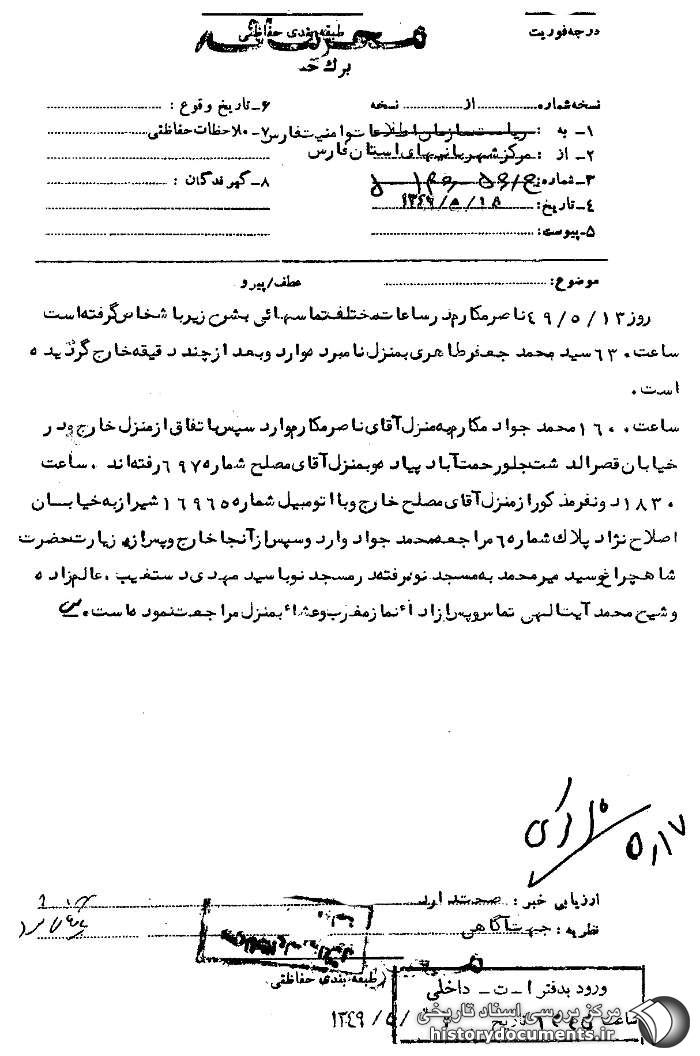 درجه فوریت
طبقه بندی حفاظتی
محرمانه
نسخه شماره ........ از ........ نسخه
۱ـ به : ریاست سازمان اطلاعات و امنیت فارس
۲ـ از : مرکز شهربانیهای استان فارس
۳ـ شماره:
۴ـ تاریخ: ۱۳۴۹/۵/۱۵
۵ـ پیوست:
۶ـ تاریخ وقوع :
۷ـ ملاحظات حفاظتی
۸ـ گیرندگان :
موضوع: عطف / پیرو
روز ۴۹/۵/۱۳ ناصر مکارم در ساعات مختلف تماسهائی بشرح زیر با شخاص گرفته است
ساعت ۶۳۰ سید محمد جعفر طاهری بمنزل نامبرده وارد و بعد از چند دقیقه خارج گردیده
است .
ساعت ۱۶۰۰ محمد جواد مکارم به منزل آقای ناصر مکارم وارد سپس با تفاق از منزل خارج ودر
خیابان قصرالدشت جلو رحمت آباد پیاده و بمنزل آقای مصلح شماره ۶۹۷ رفته اند . ساعت
۱۸۳۰ دونفر مذکور از منزل آقای مصلح خارج و با اتومبیل شماره ۱۶۹۶۵ شیراز به خیابان
اصلاح نژاد پلاک شماره ۶۵ مراجعه محمد جواد وارد وسپس از آنجا خارج وپس از زیارت حضرت
شاهچراغ و سید میر محمد به مسجد نو رفته در مسجد نو با سید مهدی دستغیب . عالم زاده
و شیخ محمد آیت الهی تماس و پس از اداء نماز مغرب و عشاء بمنزل مراجعت نموده است .
۵/۱۷
ارزیابی خبر : صحت دارد
نظریه : جهت آگاهی
طبقه بندی حفاظتی
ورود بدفتر ا ـ ت ـ داخلی
ساعت
تاریخ ۱۳۴۹/۵/
مرکز بررسی اسناد تاریخی
historydocuments.ir